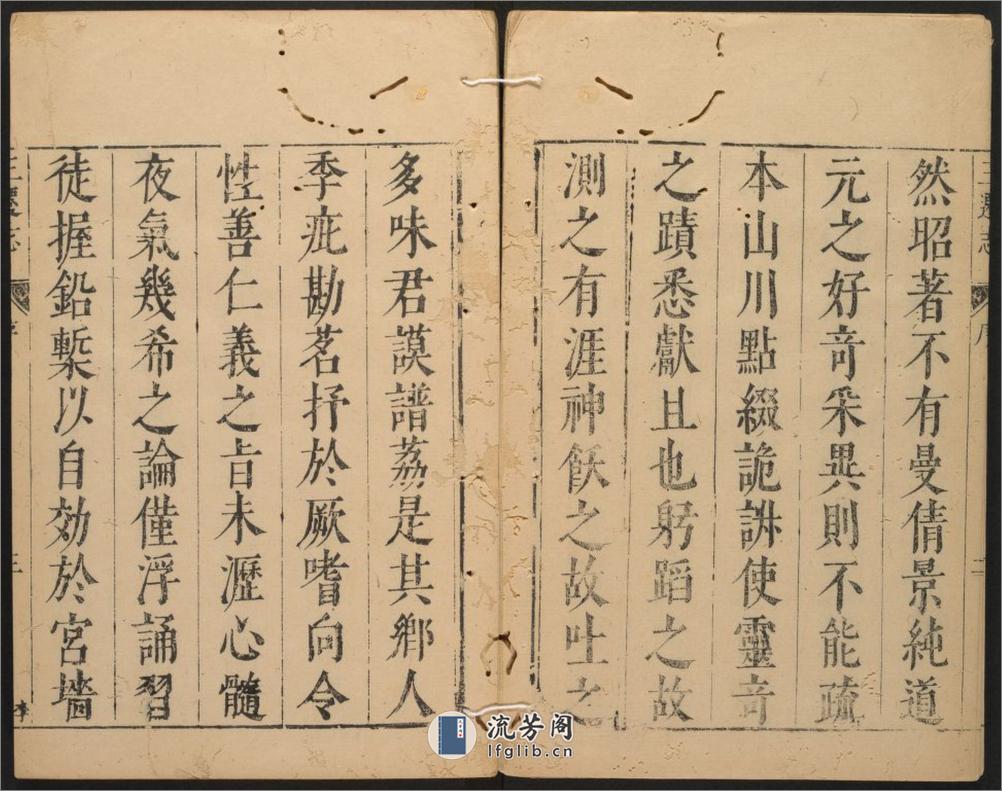 三遷志
序
二
然昭著不有曼倩景純道
元之好竒釆異則不能疏
本山川點綴詭訣使靈竒
之蹟悉獻且也躬蹈之故
測之有涯神飫之故吐之
多味君謨譜荔是其鄉人
季疵勘茗抒於厥嗜向令
性善仁義之旨未瀝心髓
夜氣幾希之論僅浮誦習
徒握鉛槧以自効於宮墻
三遷志
序
三
流芳阁
lfglib.cn